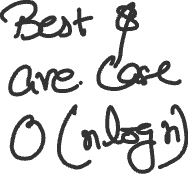 Best &
ave. Case
O(nlogn)